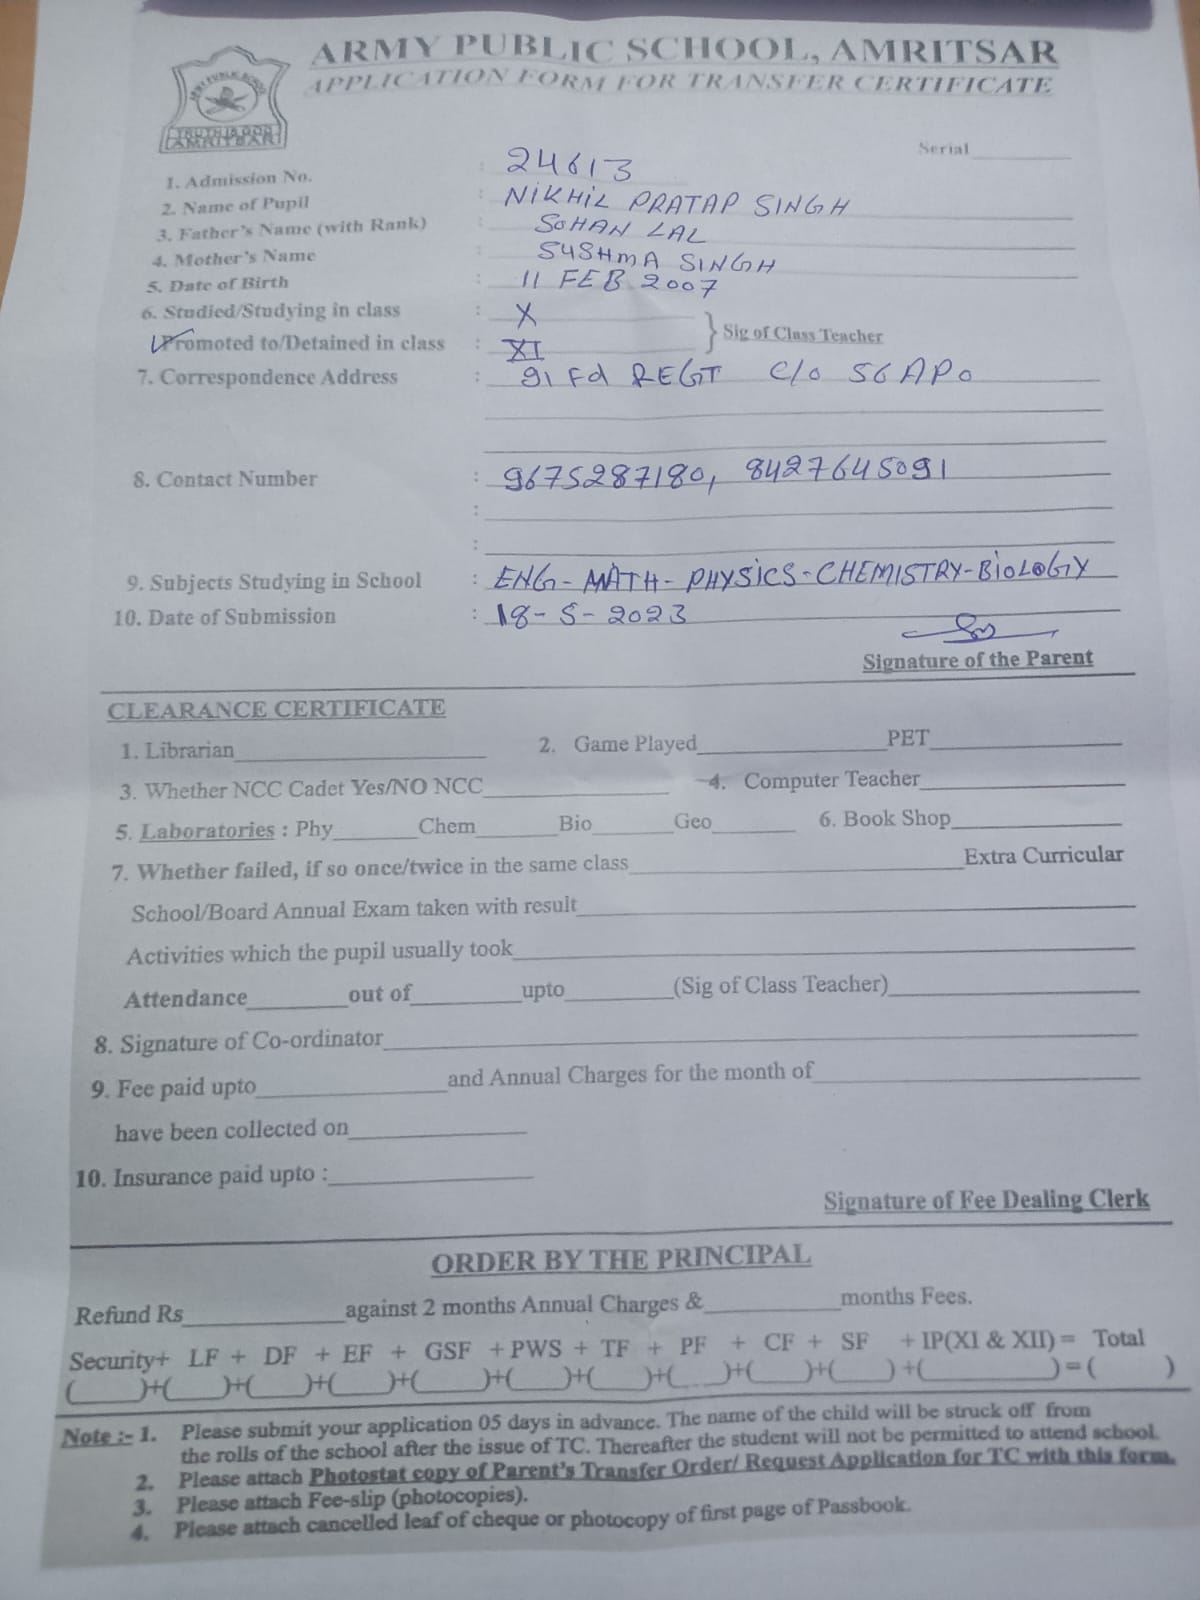 ARMY PUBLIC SCHOOL, AMRITSAR
APPLICATION FORM FOR TRANSFER CERTIFICATE
ARMY PUBLIC SCHOOL
TRUTH IS GOD
AMRITSAR
Serial
1. Admission No. : 24613
2. Name of Pupil : NIKHIL PRATAP SINGH
3. Father's Name (with Rank) : SOHAN LAL
4. Mother's Name : SUSHMA SINGH
5. Date of Birth : 11 FEB 2007
6. Studied/Studying in class : X
Promoted to/Detained in class : XI
} Sig of Class Teacher
7. Correspondence Address : 91 Fd REGT C/O 56 APO
8. Contact Number : 9675287180, 8427645091
:
:
9. Subjects Studying in School : ENG - MATH - PHYSICS - CHEMISTRY - BIOLOGY
10. Date of Submission : 18-5-2023
Signature of the Parent
CLEARANCE CERTIFICATE
1. Librarian 2. Game Played PET
3. Whether NCC Cadet Yes/NO NCC 4. Computer Teacher
5. Laboratories : Phy Chem Bio Geo 6. Book Shop
7. Whether failed, if so once/twice in the same class Extra Curricular
School/Board Annual Exam taken with result
Activities which the pupil usually took
Attendance out of upto (Sig of Class Teacher)
8. Signature of Co-ordinator
9. Fee paid upto and Annual Charges for the month of
have been collected on
10. Insurance paid upto :
Signature of Fee Dealing Clerk
ORDER BY THE PRINCIPAL
Refund Rs against 2 months Annual Charges & months Fees.
Security+ LF + DF + EF + GSF + PWS + TF + PF + CF + SF + IP(XI & XII) = Total
( )+( )+( )+( )+( )+( )+( )+( )+( )+( )+( )=( )
Note :- 1. Please submit your application 05 days in advance. The name of the child will be struck off from
the rolls of the school after the issue of TC. Thereafter the student will not be permitted to attend school.
2. Please attach Photostat copy of Parent's Transfer Order/ Request Application for TC with this form.
3. Please attach Fee-slip (photocopies).
4. Please attach cancelled leaf of cheque or photocopy of first page of Passbook.